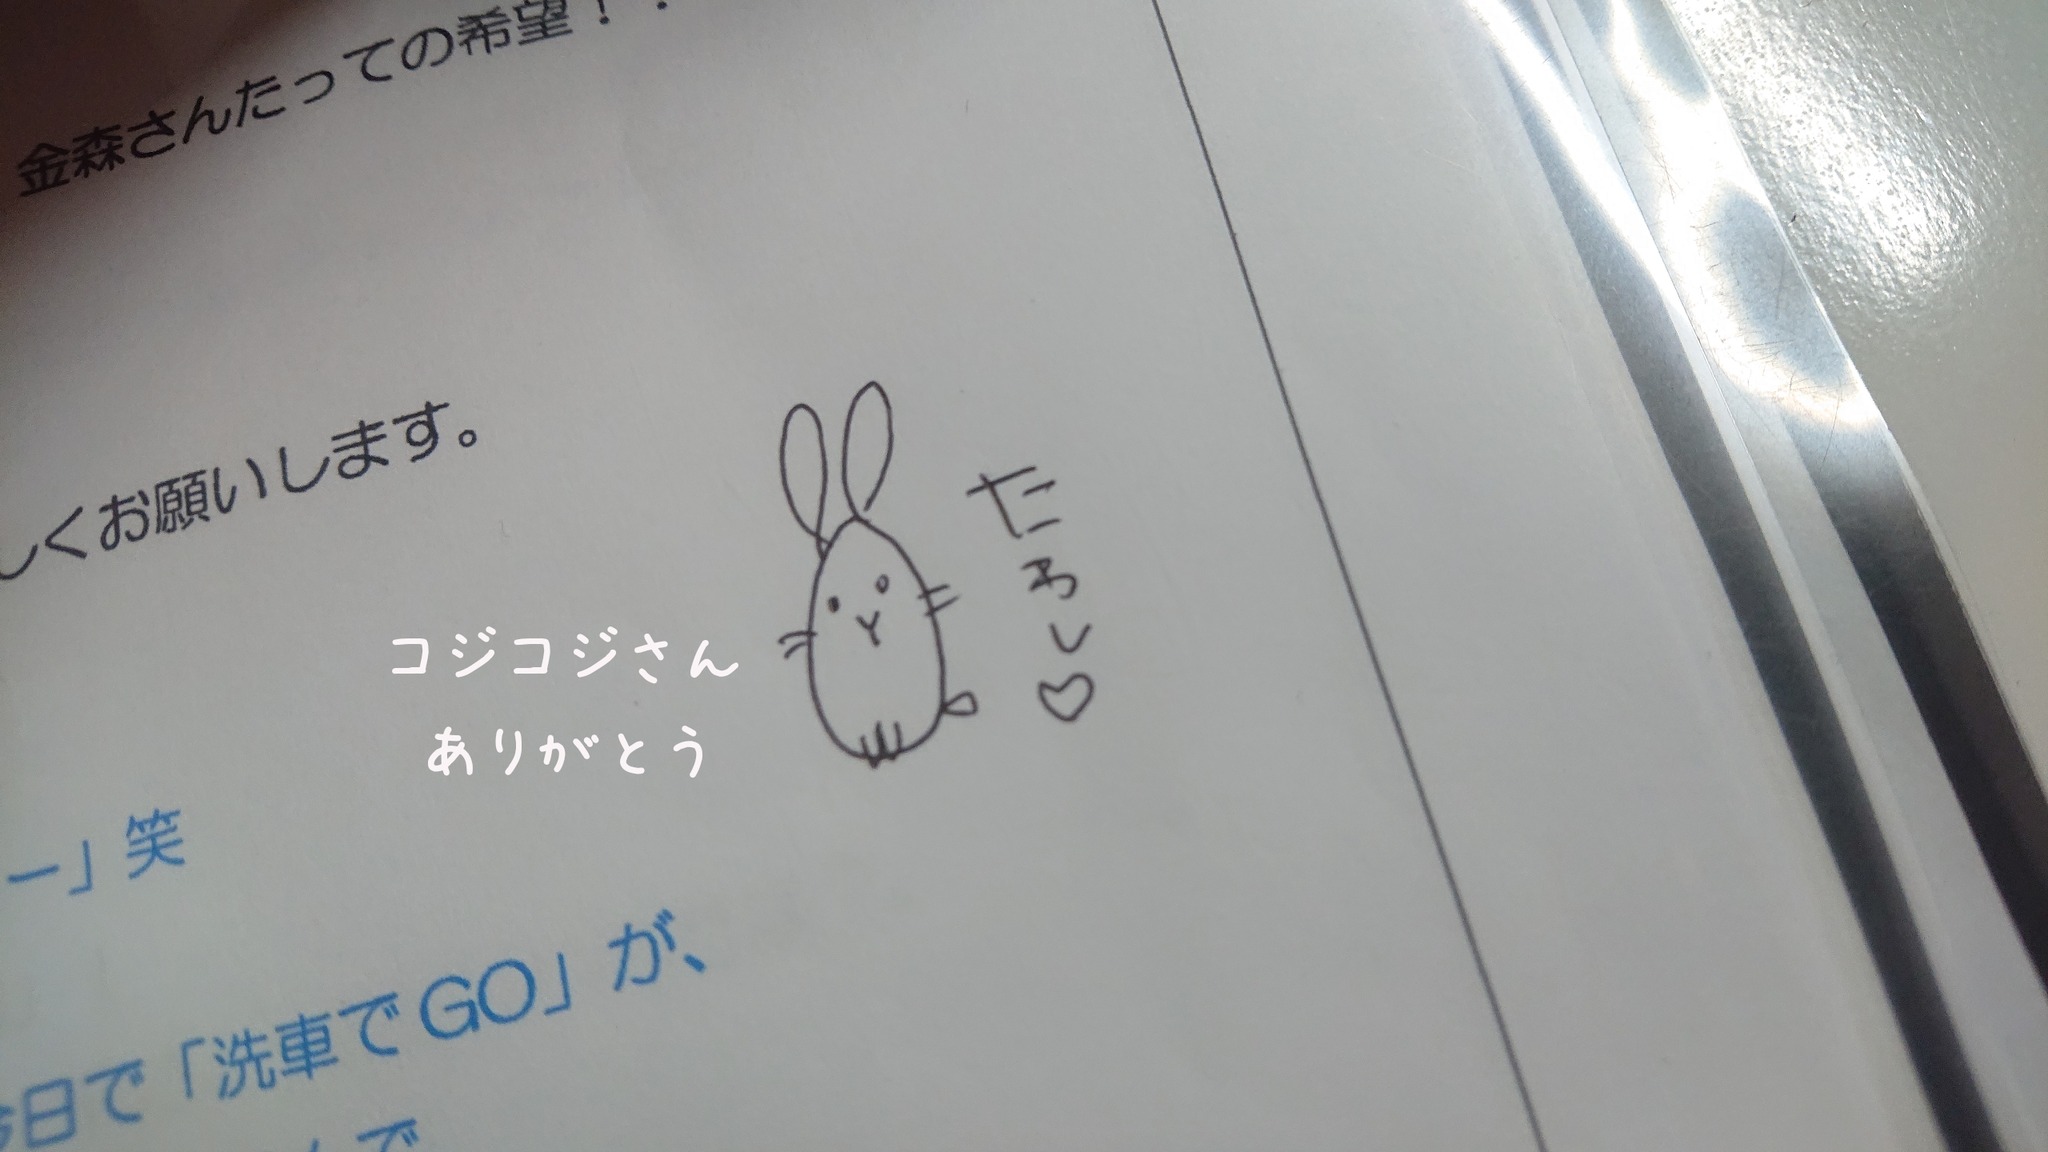 金森さんたっての希望！！
しくお願いします。
たろし♡
コジコジさん
ありがとう
ー」笑
今日で「洗車でGO」が、
んで